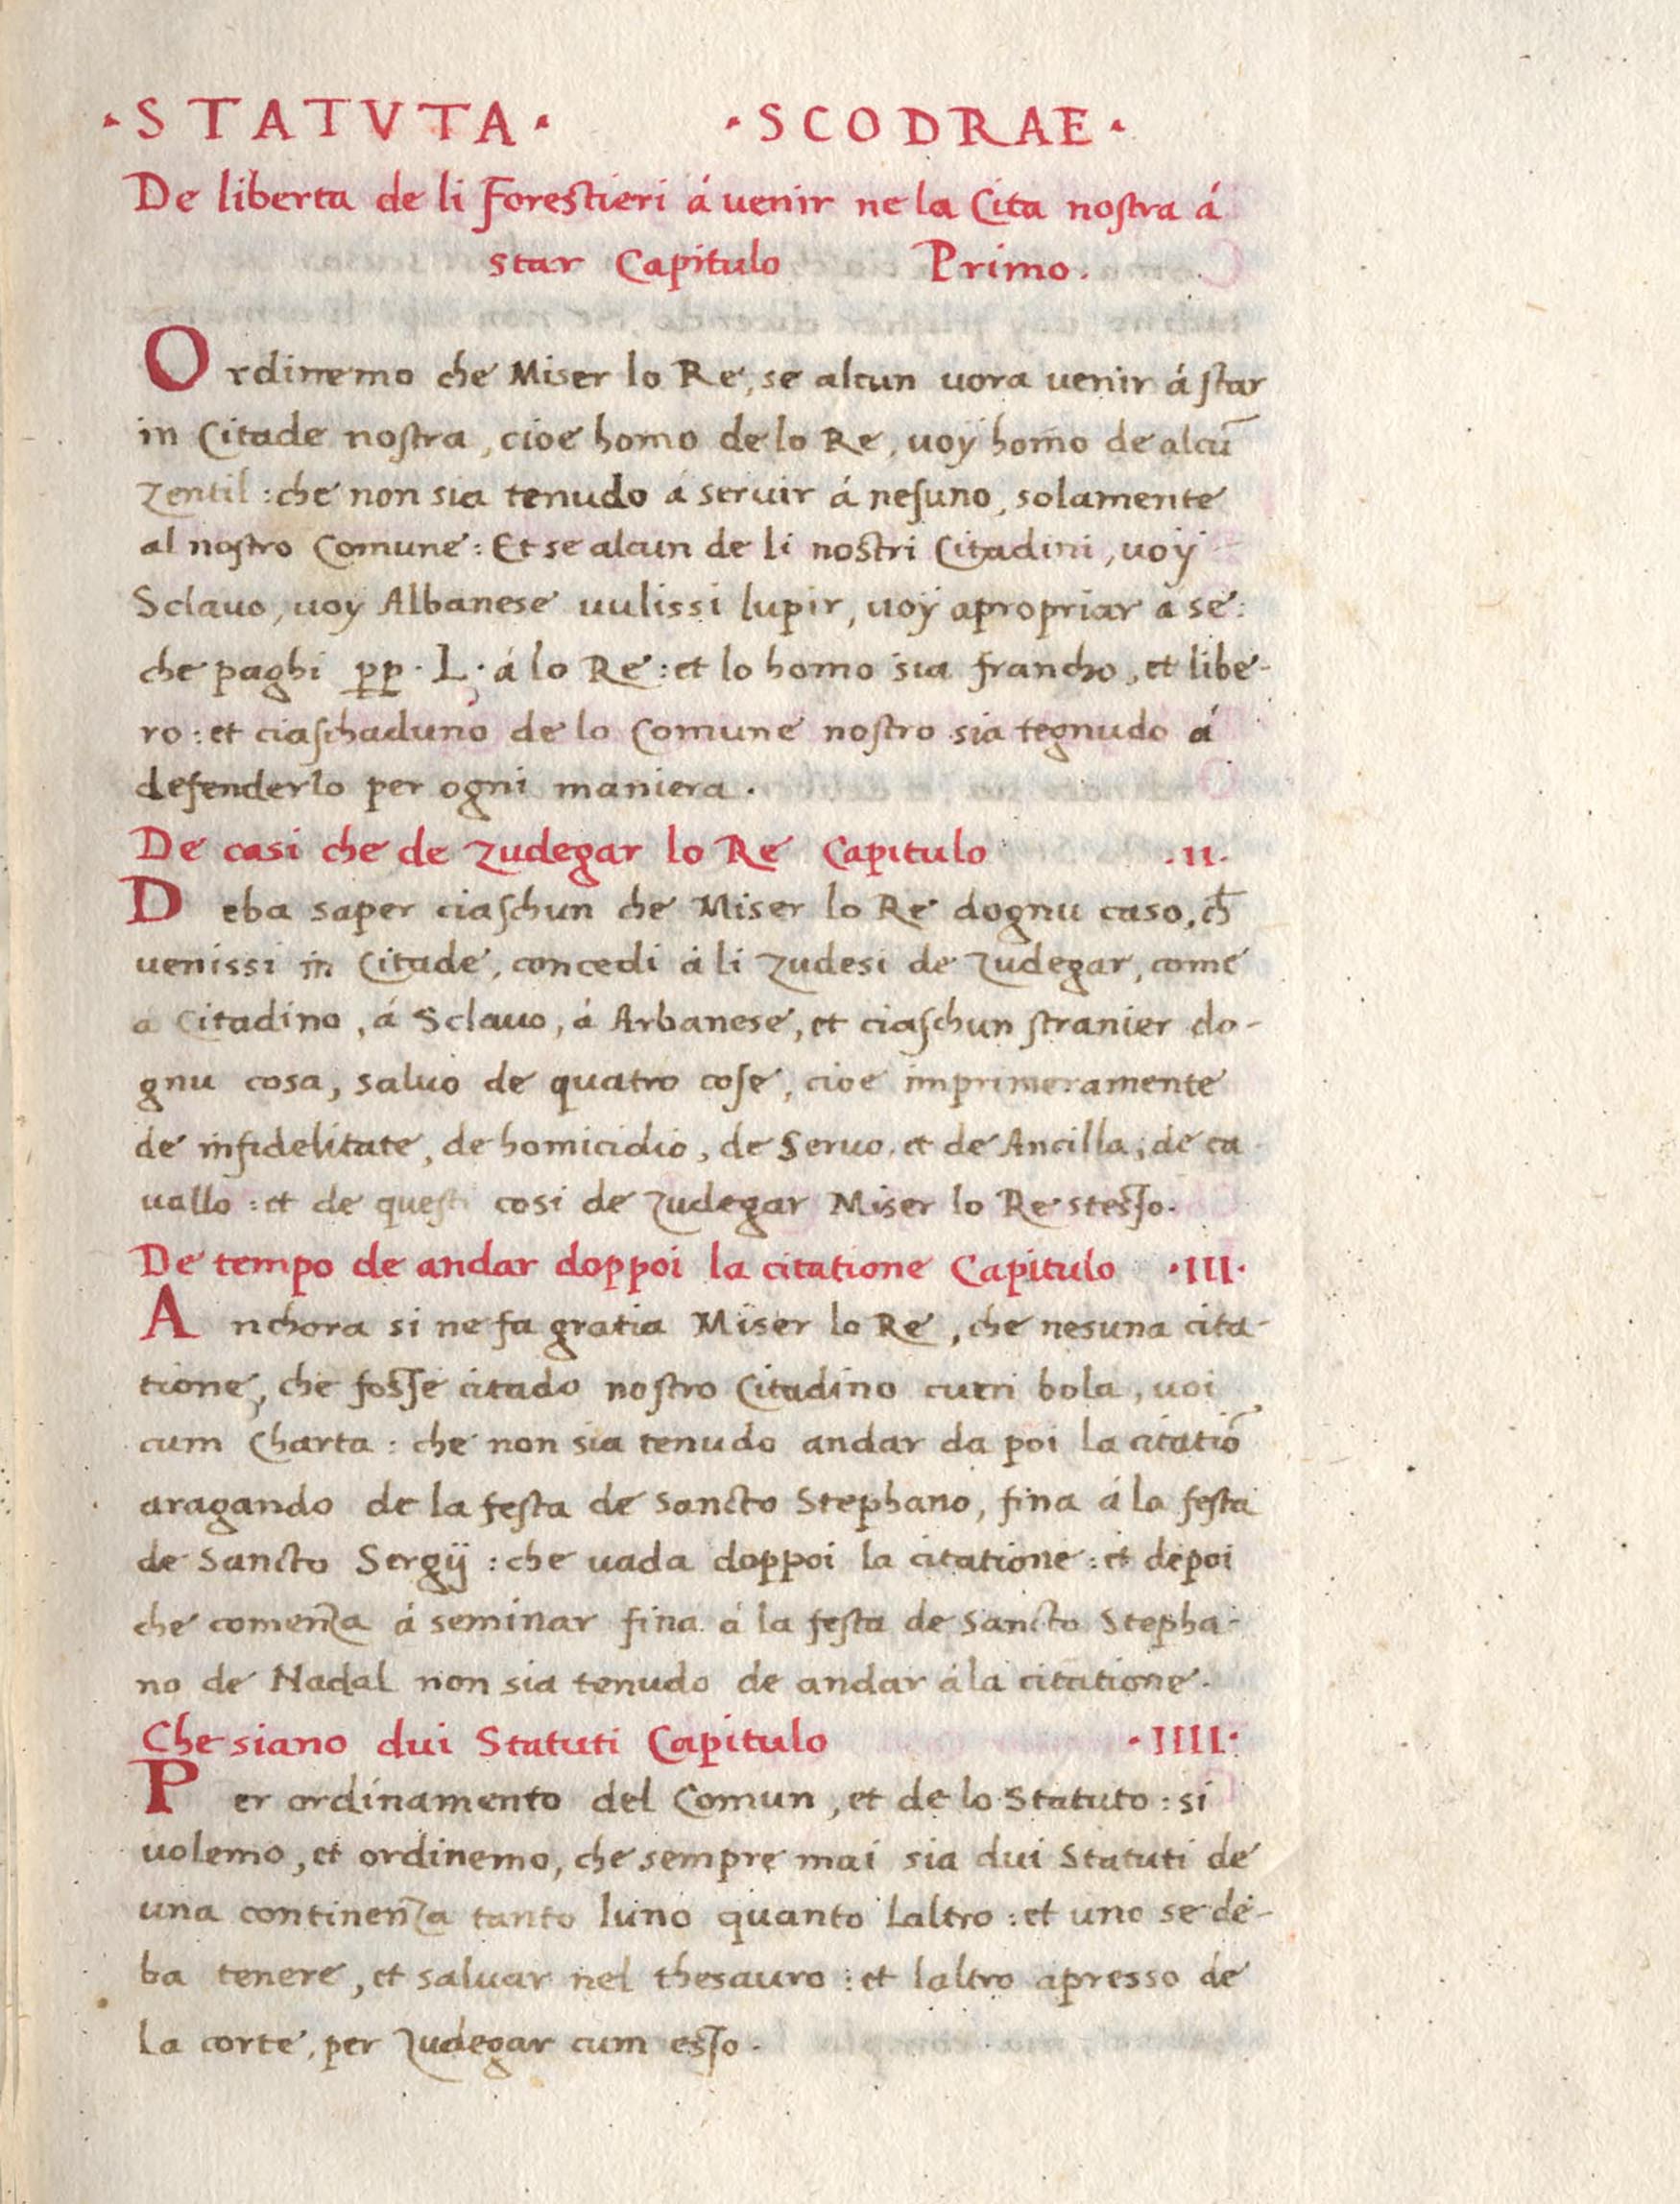 ·STATVTA· ·SCODRAE·
De liberta de li Forestieri á uenir ne la Cita nostra á
star Capitulo Primo.
Ordinemo che Miser lo Re, se alcun uora uenir á star
in Citade nostra, cioe homo de lo Re, uoy homo de alcū
zentil: che non sia tenudo á seruir á nesuno, solamente
al nostro Comune: Et se alcun de li nostri Citadini, uoy
Sclauo, uoy Albanese uulissi lupir, uoy apropriar a se:
che paghi pp. L. á lo Re: et lo homo sia francho, et libe-
ro: et ciaschaduno de lo Comune nostro sia tegnudo á
defenderlo per ogni maniera.
De casi che de zudegar lo Re Capitulo .II.
Deba saper ciaschun che Miser lo Re dognu caso, ch̄
uenissi in Citade, concedi á li zudesi de zudegar, come
a Citadino, á Sclauo, á Arbanese, et ciaschun stranier do-
gnu cosa, saluo de quatro cose, cioe imprimeramente
de infidelitate, de homicidio, de Seruo, et de Ancilla, de ca
uallo: et de questi cosi de zudegar Miser lo Re stesso.
De tempo de andar doppoi la citatione Capitulo ·III·
Anchora si ne fa gratia Miser lo Re, che nesuna cita-
tione, che fosse citado nostro Citadino cum bola, uoi
cum Charta: che non sia tenudo andar da poi la citatiō
aragando de la festa de Sancto Stephano, fina á la festa
de Sancto Sergij: che uada doppoi la citatione: et depoi
che comenza á seminar fina á la festa de Sancto Stepha-
no de Nadal non sia tenudo de andar á la citatione.
Che siano dui Statuti Capitulo ·IIII·
Per ordinamento del Comun, et de lo Statuto: si
uolemo, et ordinemo, che sempre mai sia dui Statuti de
una continenza tanto luno quanto laltro: et uno se de-
ba tenere, et saluar nel thesauro: et laltro apresso de
la corte, per zudegar cum esso.